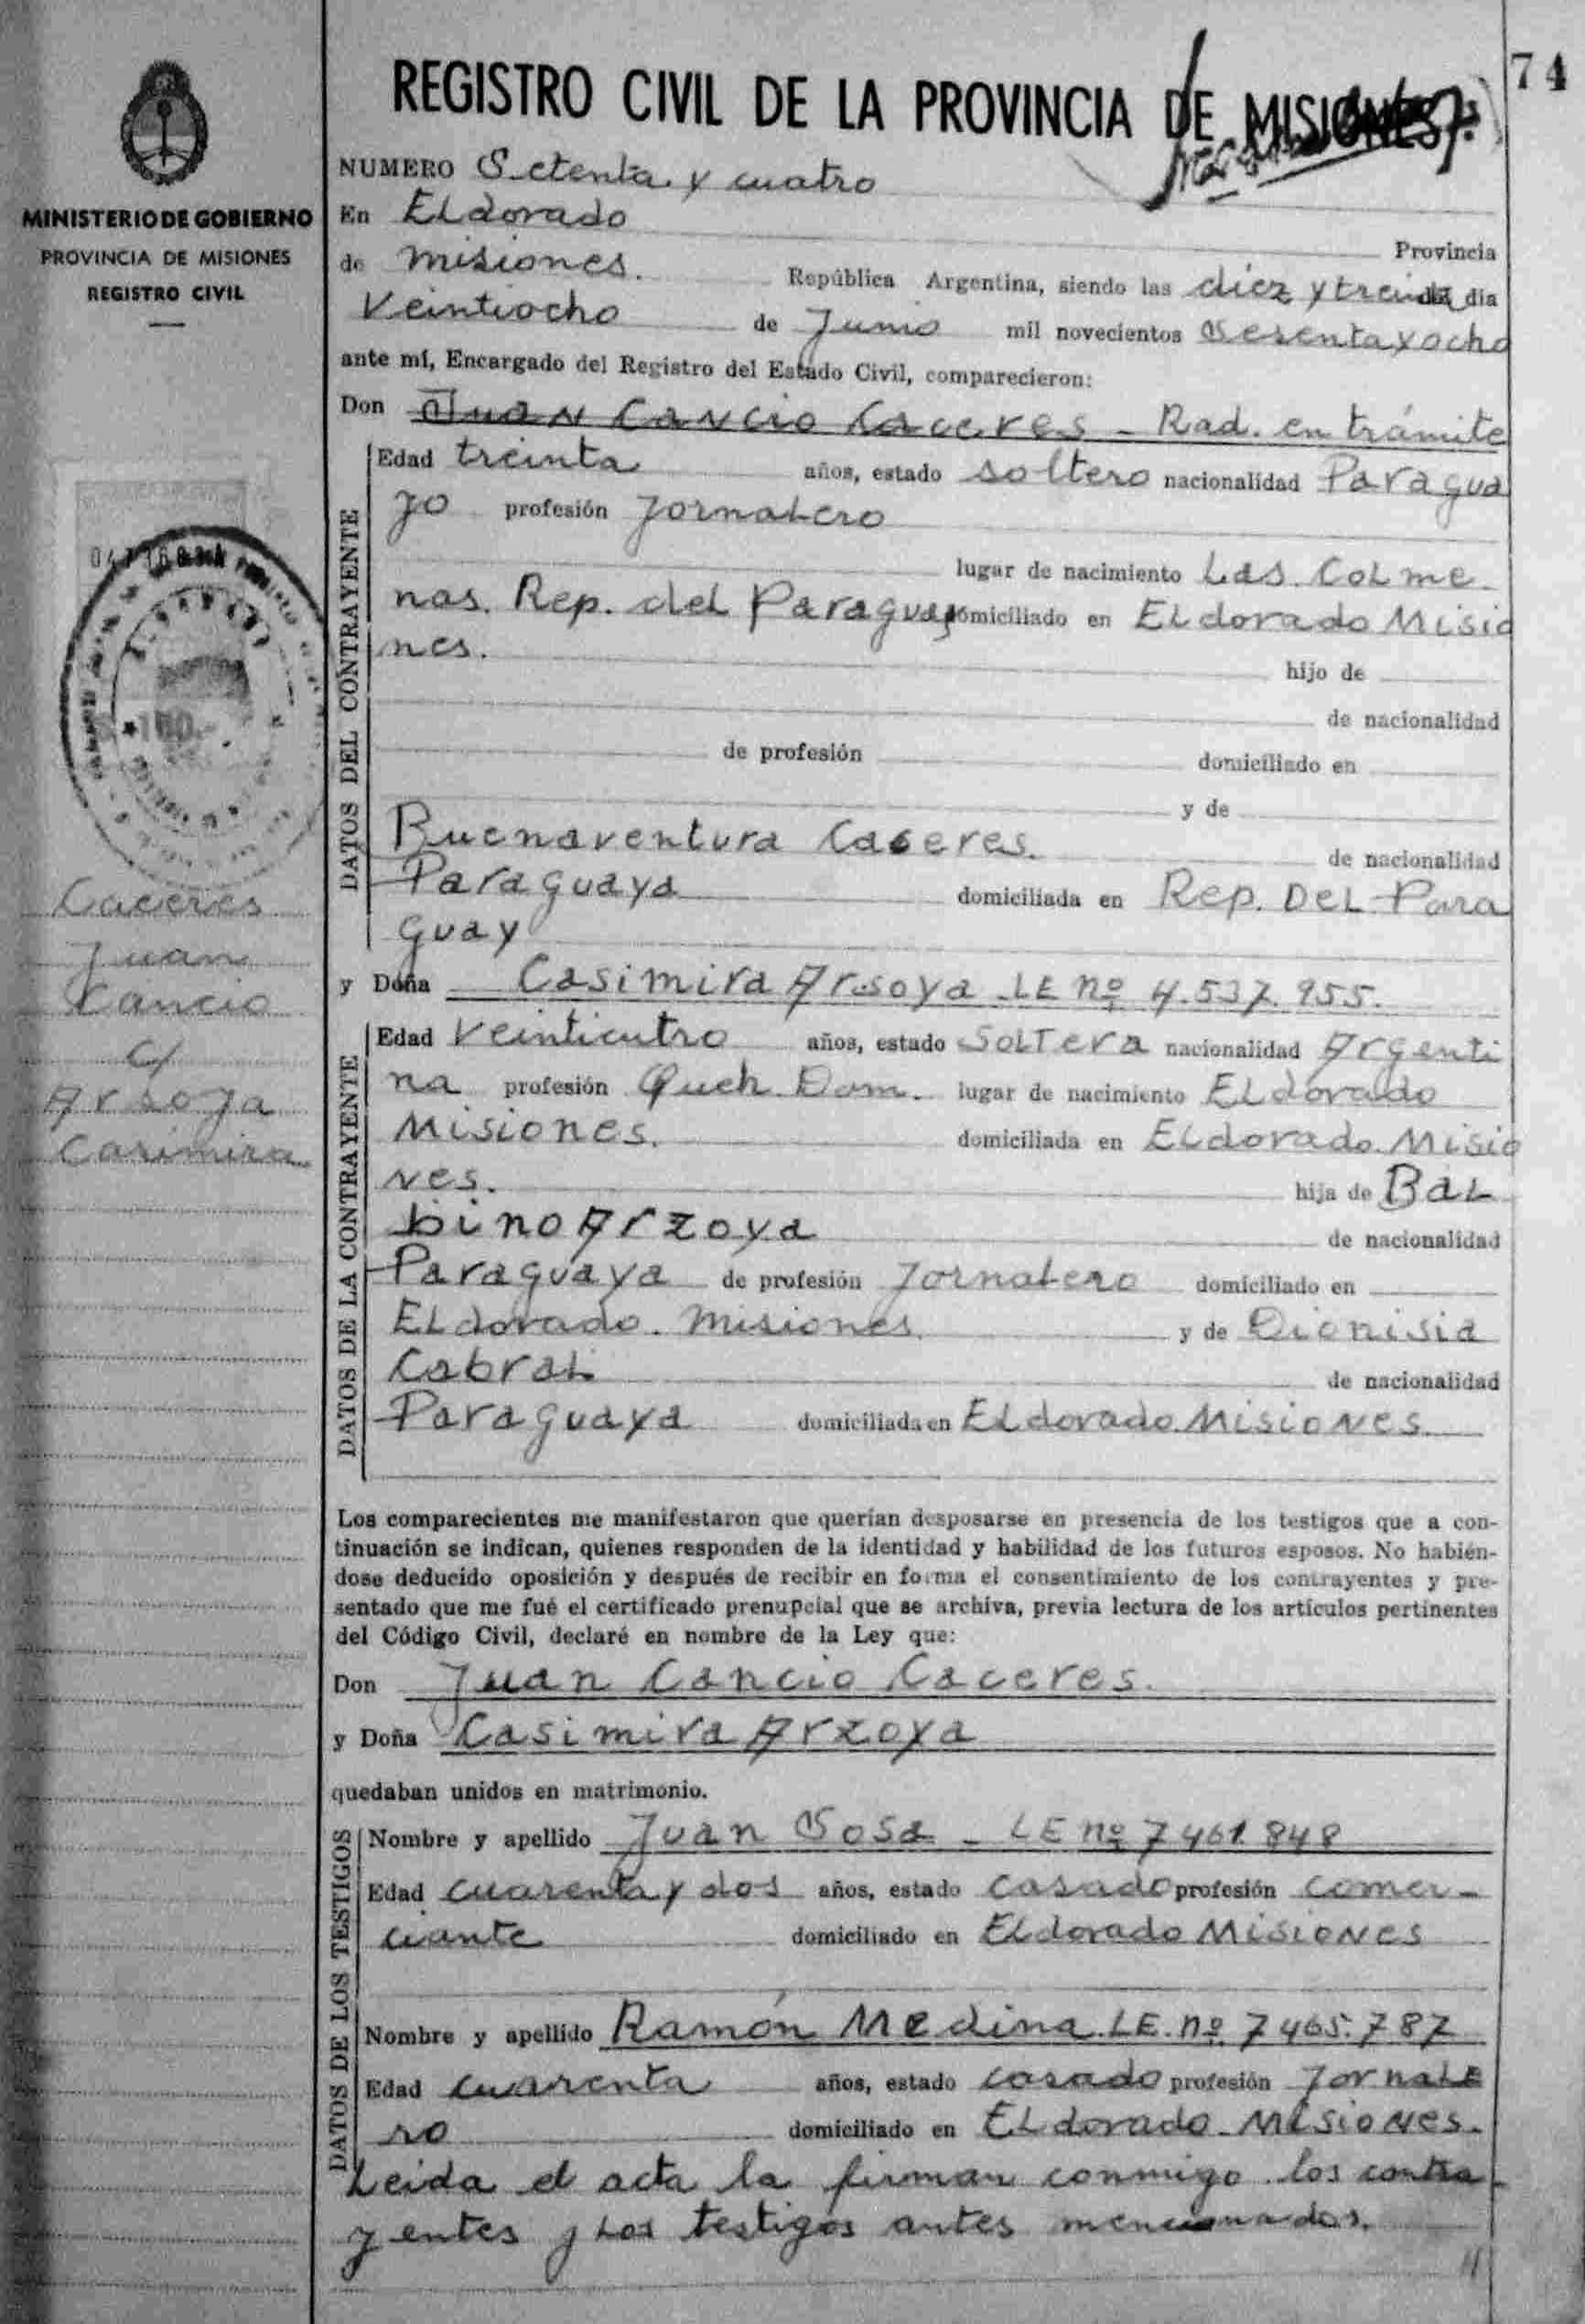 74
REGISTRO CIVIL DE LA PROVINCIA DE MISIONES
MINISTERIO DE GOBIERNO
PROVINCIA DE MISIONES
REGISTRO CIVIL
NUMERO Setenta y cuatro
En ELdorado Provincia
de misiones. República Argentina, siendo las diez y treinta día
Veintiocho de Junio mil novecientos sesenta y ocho
ante mí, Encargado del Registro del Estado Civil, comparecieron:
Don Juan Cancio Caceres - Rad. en trámite
DATOS DEL CONTRAYENTE
Edad treinta años, estado soltero nacionalidad Paragua
yo profesión JornaLero
lugar de nacimiento Las CoLme
nas. Rep. deL Paraguay domiciliado en ELdorado Misio
nes. hijo de
de nacionalidad
de profesión domiciliado en
y de
Buenaventura Caceres. de nacionalidad
Paraguaya domiciliada en Rep. DeL Para
guay
Caceres
Juan
Cancio
c/
Arsoya
Casimira
y Doña Casimira Arsoya LE nº 4.537.955.
DATOS DE LA CONTRAYENTE
Edad Veinticutro años, estado SoLTera nacionalidad Argenti
na profesión Queh. Dom. lugar de nacimiento ELdorado
Misiones. domiciliada en ELdorado. Misio
nes. hija de BaL
bino Arzoya de nacionalidad
Paraguaya de profesión JornaLero domiciliado en
ELdorado. misiones y de Dionisia
CabraL de nacionalidad
Paraguaya domiciliada en ELdorado. Misiones
Los comparecientes me manifestaron que querían desposarse en presencia de los testigos que a con-
tinuación se indican, quienes responden de la identidad y habilidad de los futuros esposos. No habién-
dose deducido oposición y después de recibir en forma el consentimiento de los contrayentes y pre-
sentado que me fué el certificado prenupcial que se archiva, previa lectura de los artículos pertinentes
del Código Civil, declaré en nombre de la Ley que:
Don Juan Cancio Caceres.
y Doña Casimira Arzoya
quedaban unidos en matrimonio.
DATOS DE LOS TESTIGOS
Nombre y apellido Juan Sosa - LE nº 7461848
Edad cuarenta y dos años, estado casado profesión comer-
ciante domiciliado en ELdorado Misiones
Nombre y apellido Ramón Medina. LE. nº 7465.787
Edad cuarenta años, estado casado profesión JornaLe
ro domiciliado en ELdorado - Misiones.
Leida el acta la firman conmigo los contra-
yentes y Los testigos antes mencionados.